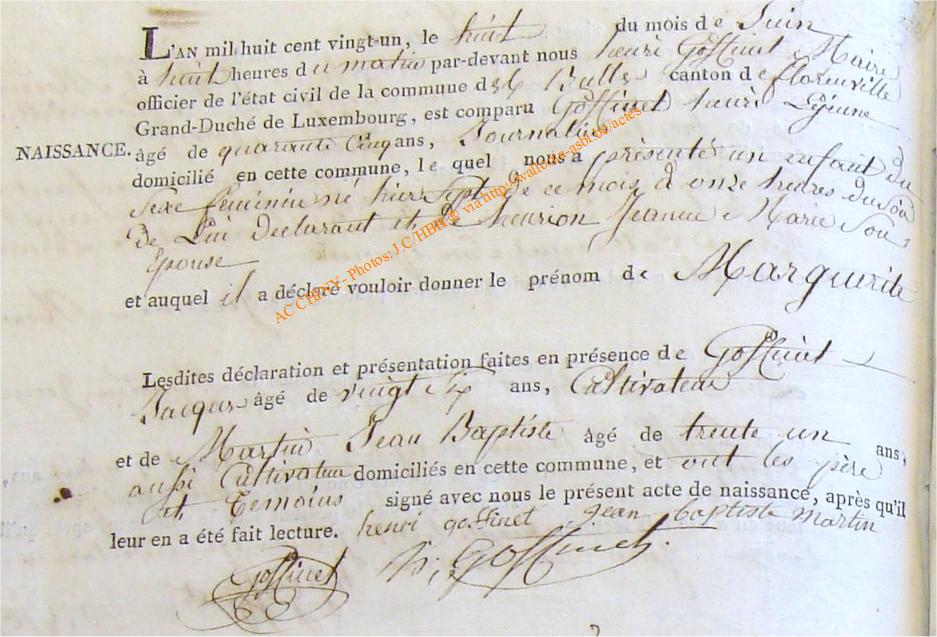 L'AN mil huit cent vingt-un, le huit du mois de Juin
à huit heures du matin par-devant nous henri Goffinet Maire
officier de l'état civil de la commune de canton de florenville
Grand-Duché de Luxembourg, est comparu Goffinet henri Lejeune
NAISSANCE. âgé de quarante Cinq ans, Journalier
domicilié en cette commune, lequel nous a présenté un enfant du
Sexe feminin né hier Sept de ce mois à onze heures du Soir
de Lui declarant et de henrion Jeanne Marie Son
Epouse
et auquel il a déclaré vouloir donner le prénom de Marguerite
Lesdites déclaration et présentation faites en présence de Goffinet
Jacques âgé de vingt Six ans, Cultivateur
et de Martin Jean Baptiste âgé de trente un ans,
aussi Cultivateur domiciliés en cette commune, et ont les père
et Temoins signé avec nous le présent acte de naissance, après qu'il
leur en a été fait lecture. henri goffinet jean baptiste martin
Goffinet h; Goffinet.
ACCHINY - Photos: J.C/HBH @ via http://wallonia-asbl.be/actes